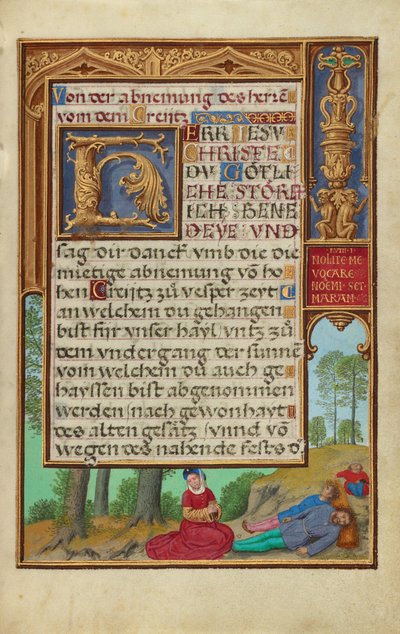 Von der abnemung des herren
vom dem Creitz
HERR JESU
CHRISTE
DU GÖTLI
CHE STÖRB
ICH BENE
DEYE UND
sag dir danck vmb die die
mietige abnemung võ ho
hen Creijtz zů vesper zeyt
an welchem du gehangen
bist fijr vnser hayl vntz zů
dem vndergang der sunnẽ
vom welchem du auch ge
hayssen bist abgenommen
werden nach gewonhayt
des alten gesätz vnnd võ
wegen des nahende fests d᷃
RVTH·I·
NOLITE ME
VOCARE
NOEMI SET
MARAM